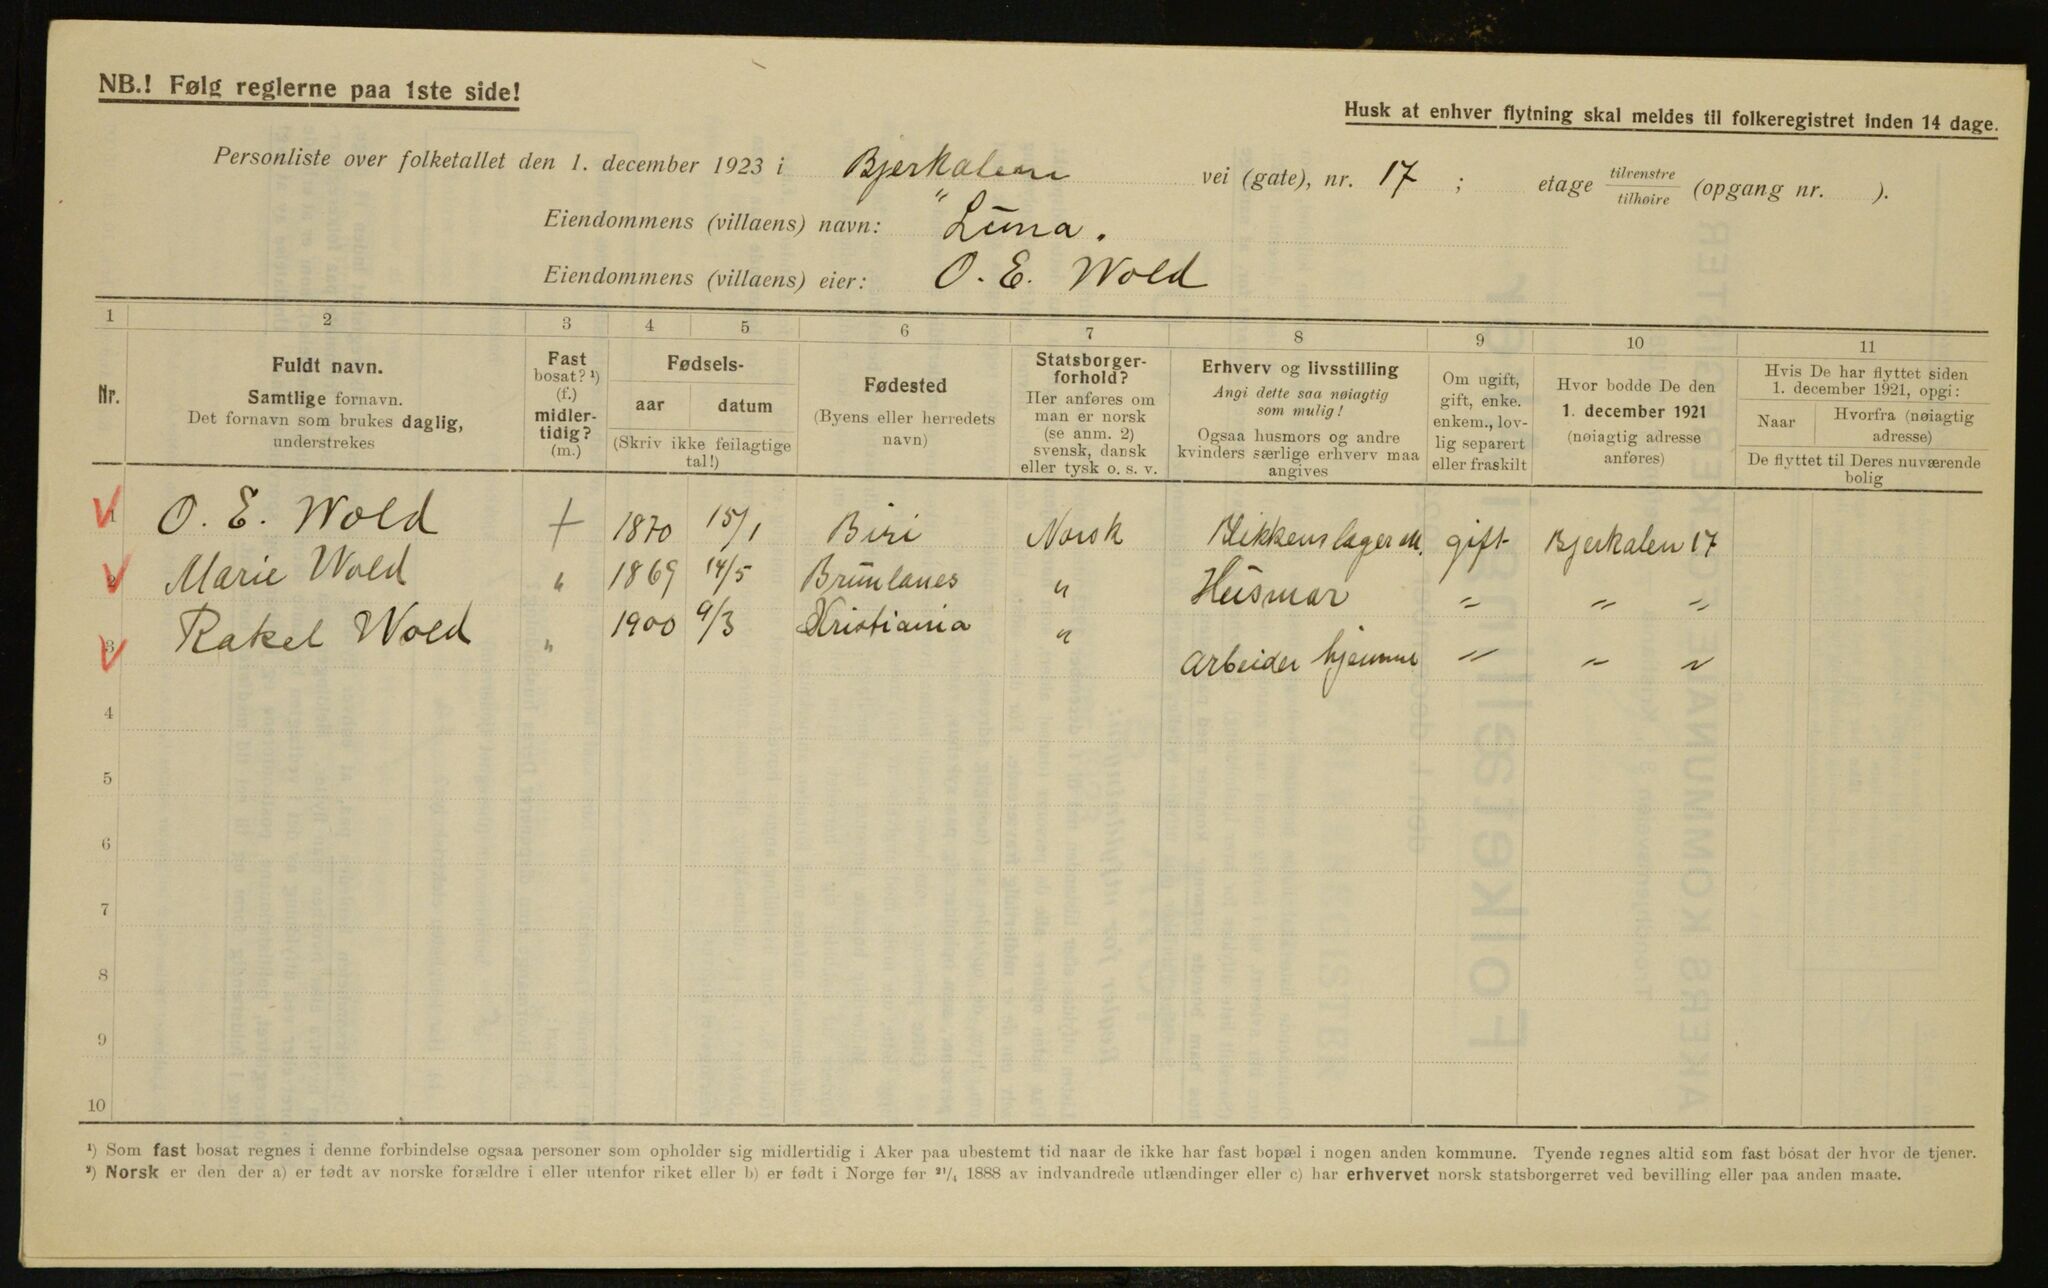 NB.! Følg reglerne paa 1ste side!
Husk at enhver flytning skal meldes til folkeregistret inden 14 dage.
Personliste over folketallet den 1. december 1923 i Bjerkaleen vei (gate), nr. 17 ; etage tilvenstre / tilhøire (opgang nr. ).
Eiendommens (villaens) navn: "Luna.
Eiendommens (villaens) eier: O. E. Wold
1 2 3 4 5 6 7 8 9 10 11
Nr.
Fuldt navn.
Samtlige fornavn.
Det fornavn som brukes daglig,
understrekes
Fast
bosat? ¹)
(f.)
midler-
tidig?
(m.)
Fødsels-
aar datum
(Skriv ikke feilagtige
tal!)
Fødested
(Byens eller herredets
navn)
Statsborger-
forhold?
Her anføres om
man er norsk
(se anm. 2)
svensk, dansk
eller tysk o. s. v.
Erhverv og livsstilling
Angi dette saa nøiagtig
som mulig!
Ogsaa husmors og andre
kvinders særlige erhverv maa
angives
Om ugift,
gift, enke.
enkem., lov-
lig separert
eller fraskilt
Hvor bodde De den
1. december 1921
(nøiagtig adresse
anføres)
Hvis De har flyttet siden
1. december 1921, opgi:
Naar Hvorfra (nøiagtig
adresse)
De flyttet til Deres nuværende
bolig
1 O. E. Wold + 1870 15/1 Biri Norsk Blikkenslagerm. gift Bjerkalen 17
2 Marie Wold " 1869 14/5 Brunlanes " Husmor " " "
3 Rakel Wold " 1900 9/3 Kristiania " Arbeider hjemme " " "
4
5
6
7
8
9
10
¹) Som fast bosat regnes i denne forbindelse ogsaa personer som opholder sig midlertidig i Aker paa ubestemt tid naar de ikke har fast bopæl i nogen anden kommune. Tyende regnes altid som fast bosat der hvor de tjener.
²) Norsk er den der a) er født av norske forældre i eller utenfor riket eller b) er født i Norge før ²¹/₄ 1888 av indvandrede utlændinger eller c) har erhvervet norsk statsborgerret ved bevilling eller paa anden maate.